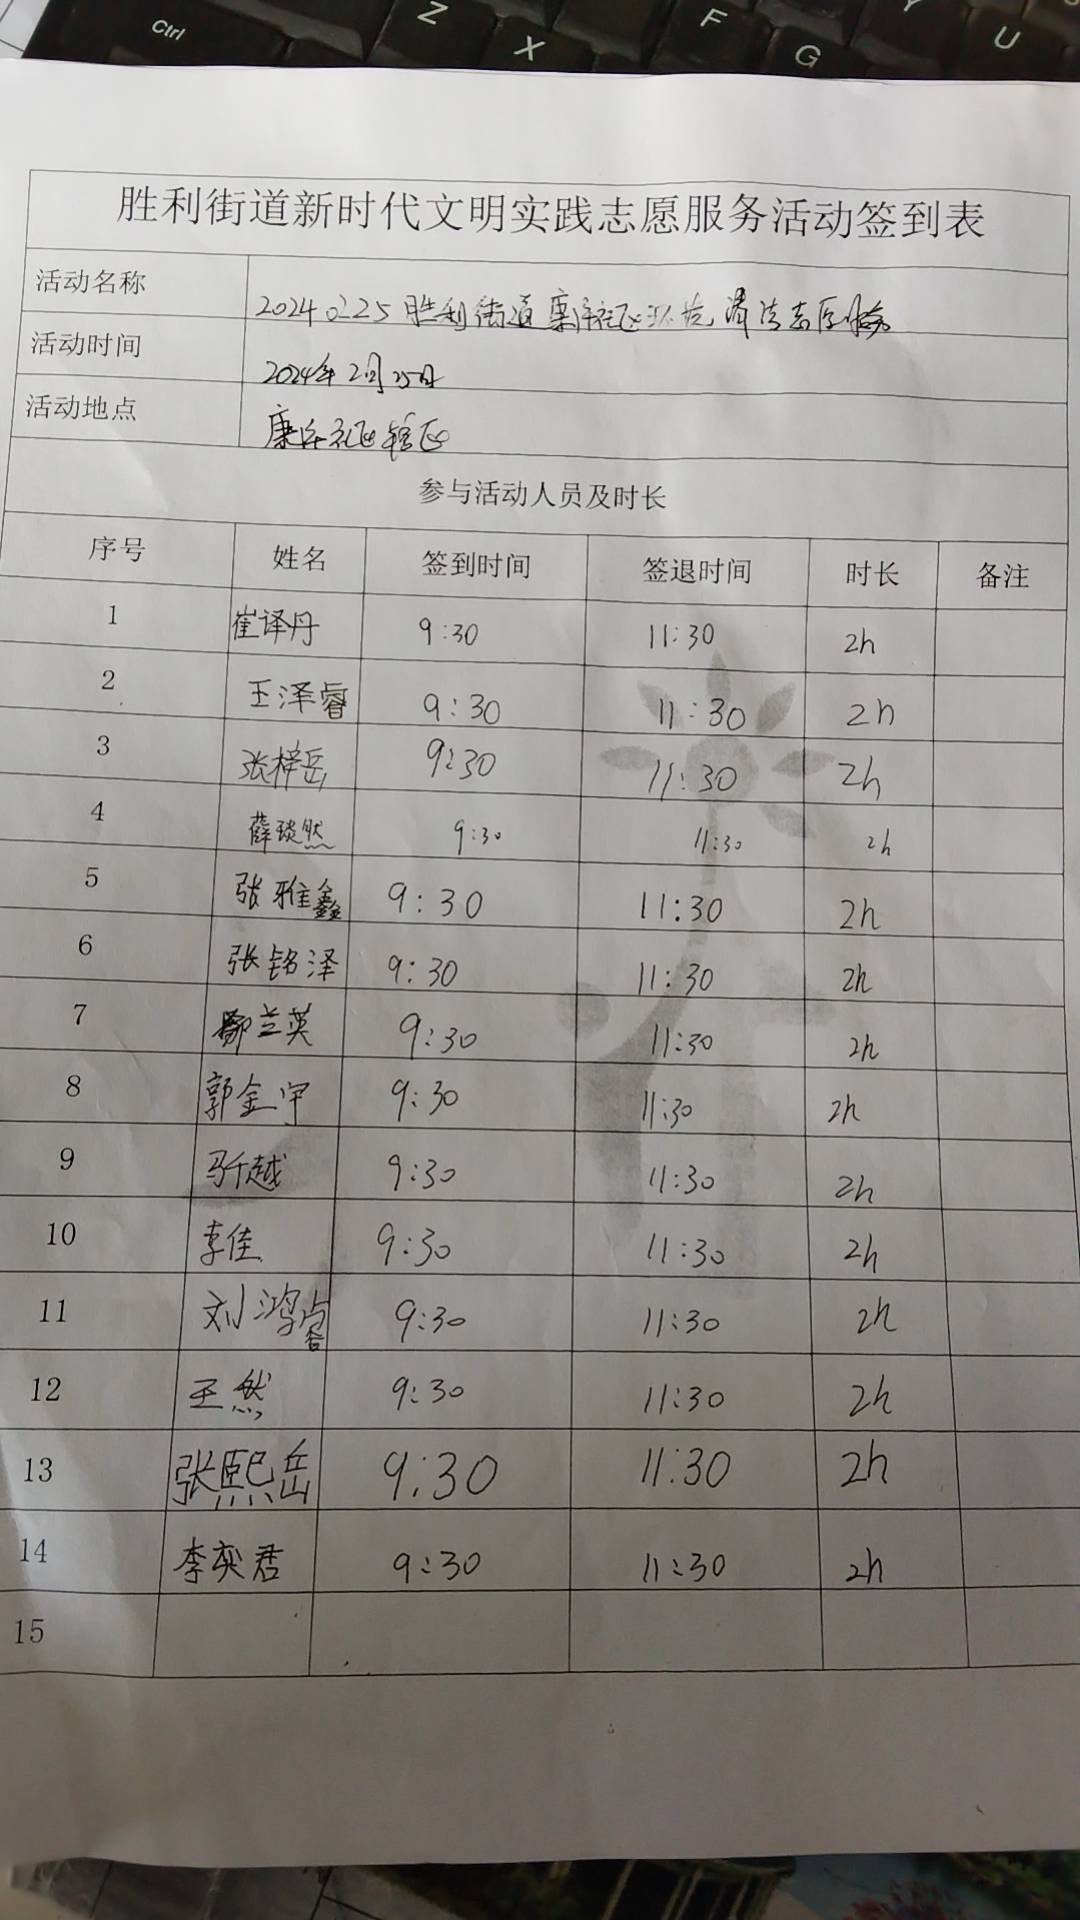 Ctrl Z X F G Y U
胜利街道新时代文明实践志愿服务活动签到表
活动名称 20240225 胜利街道康许社区环境清洁志愿服务
活动时间 2024年2月25日
活动地点 社区辖区
参与活动人员及时长
序号 姓名 签到时间 签退时间 时长 备注
1 崔译丹 9:30 11:30 2h
2 王泽睿 9:30 11:30 2h
3 张梓岳 9:30 11:30 2h
4 薛琰然 9:30 11:30 2h
5 张雅鑫 9:30 11:30 2h
6 张铭泽 9:30 11:30 2h
7 兰英 9:30 11:30 2h
8 郭金宇 9:30 11:30 2h
9 越 9:30 11:30 2h
10 李佳 9:30 11:30 2h
11 刘鸿睿 9:30 11:30 2h
12 王然 9:30 11:30 2h
13 张熙岳 9:30 11:30 2h
14 李奕君 9:30 11:30 2h
15